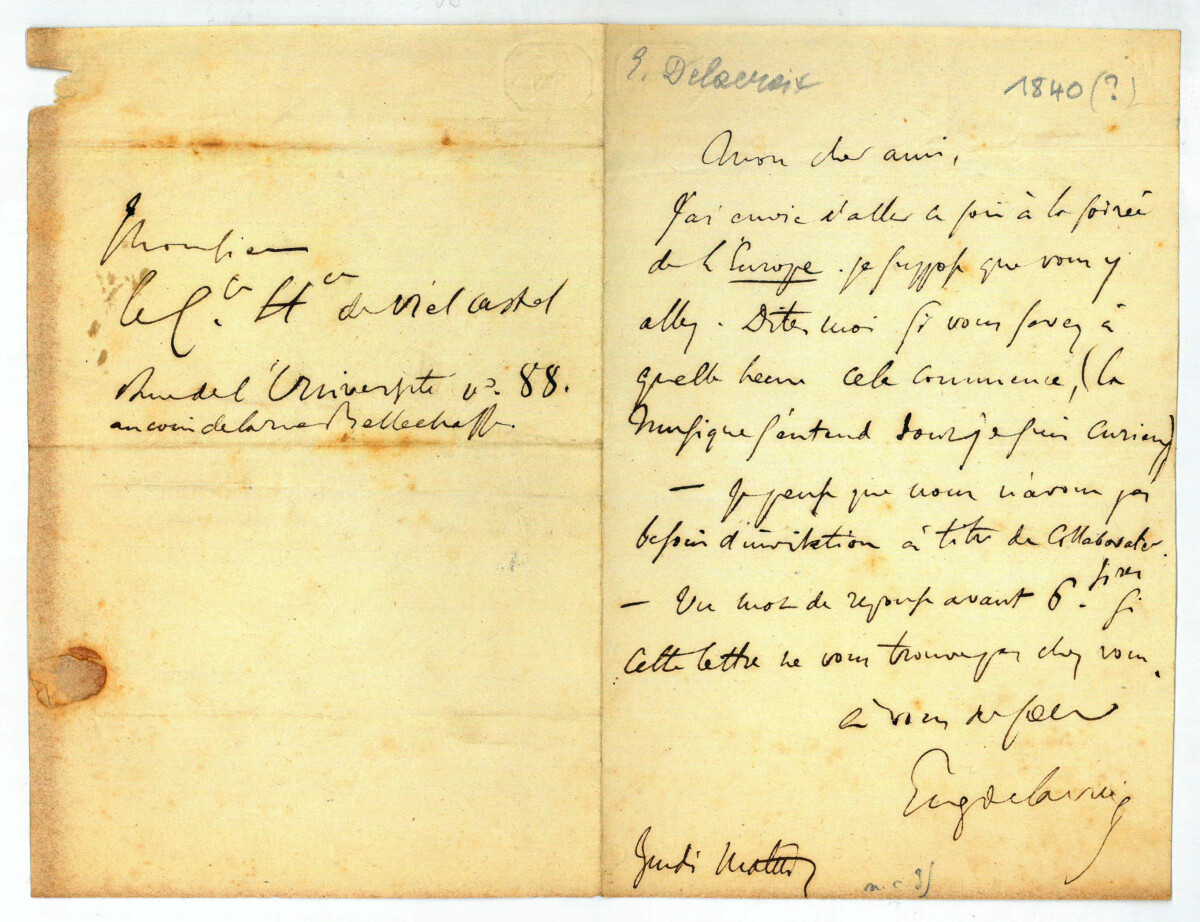 Monsieur
le Cte Hce de Viel Castel
Rue de l'Université no. 88.
au coin de la rue Bellechasse.
E. Delacroix
1840 (?)
Mon cher ami,
J'ai envie d'aller ce soir à la soirée
de l'Europe. je suppose que vous y
allez. Dites moi si vous savez à
quelle heure cela commence, (la
musique s'entend dont je suis curieux)
— Je pense que nous n'avons pas
besoin d'invitation à titre de collaborateur.
— Un mot de réponse avant 6. hres si
cette lettre ne vous trouve pas chez vous.
à vous de cœur
Eug Delacroix
Jeudi matin